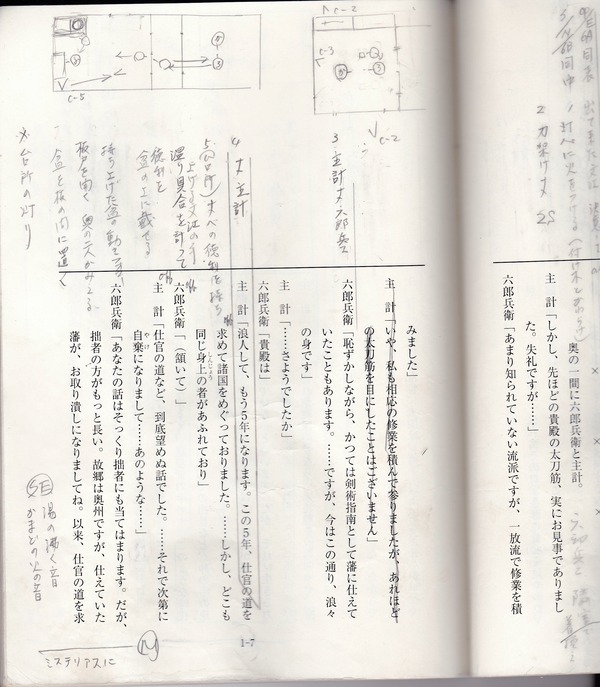 奥の一間に六郎兵衛と主計。
主　計「しかし、先ほどの貴殿の太刀筋、実にお見事でありまし
た。失礼ですが……」
六郎兵衛「あまり知られていない流派ですが、一放流で修業を積
みました」
主　計「いや、私も相応の修業を積んで参りましたが、あれほど
の太刀筋を目にしたことはございません」
六郎兵衛「恥ずかしながら、かつては剣術指南として藩に仕えて
いたこともあります。……ですが、今はこの通り、浪々
の身です」
主　計「……さようでしたか」
六郎兵衛「貴殿は」
主　計「浪人して、もう5年になります。この5年、仕官の道を
求めて諸国をめぐっておりました。……しかし、どこも
同じ身上の者があふれており」
六郎兵衛「（頷いて）」
主　計「仕官の道など、到底望めぬ話でした。……それで次第に
自棄になりまして……あのような……」
六郎兵衛「あなたの話はそっくり拙者にも当てはまります。だが、
拙者の方がもっと長い。故郷は奥州ですが、仕えていた
藩が、お取り潰しになりましてね。以来、仕官の道を求
1-7
2 刀架け丈 2S
3 主計丈、六郎兵
4 丈主計
徳利を
盆の上に載せる
持ち上げた盆の動き
盆を板の間に置く
台所の灯り
C-2
C-3
C-2
C-5
湯の沸く音
かまどの火の音
ミステリアスに